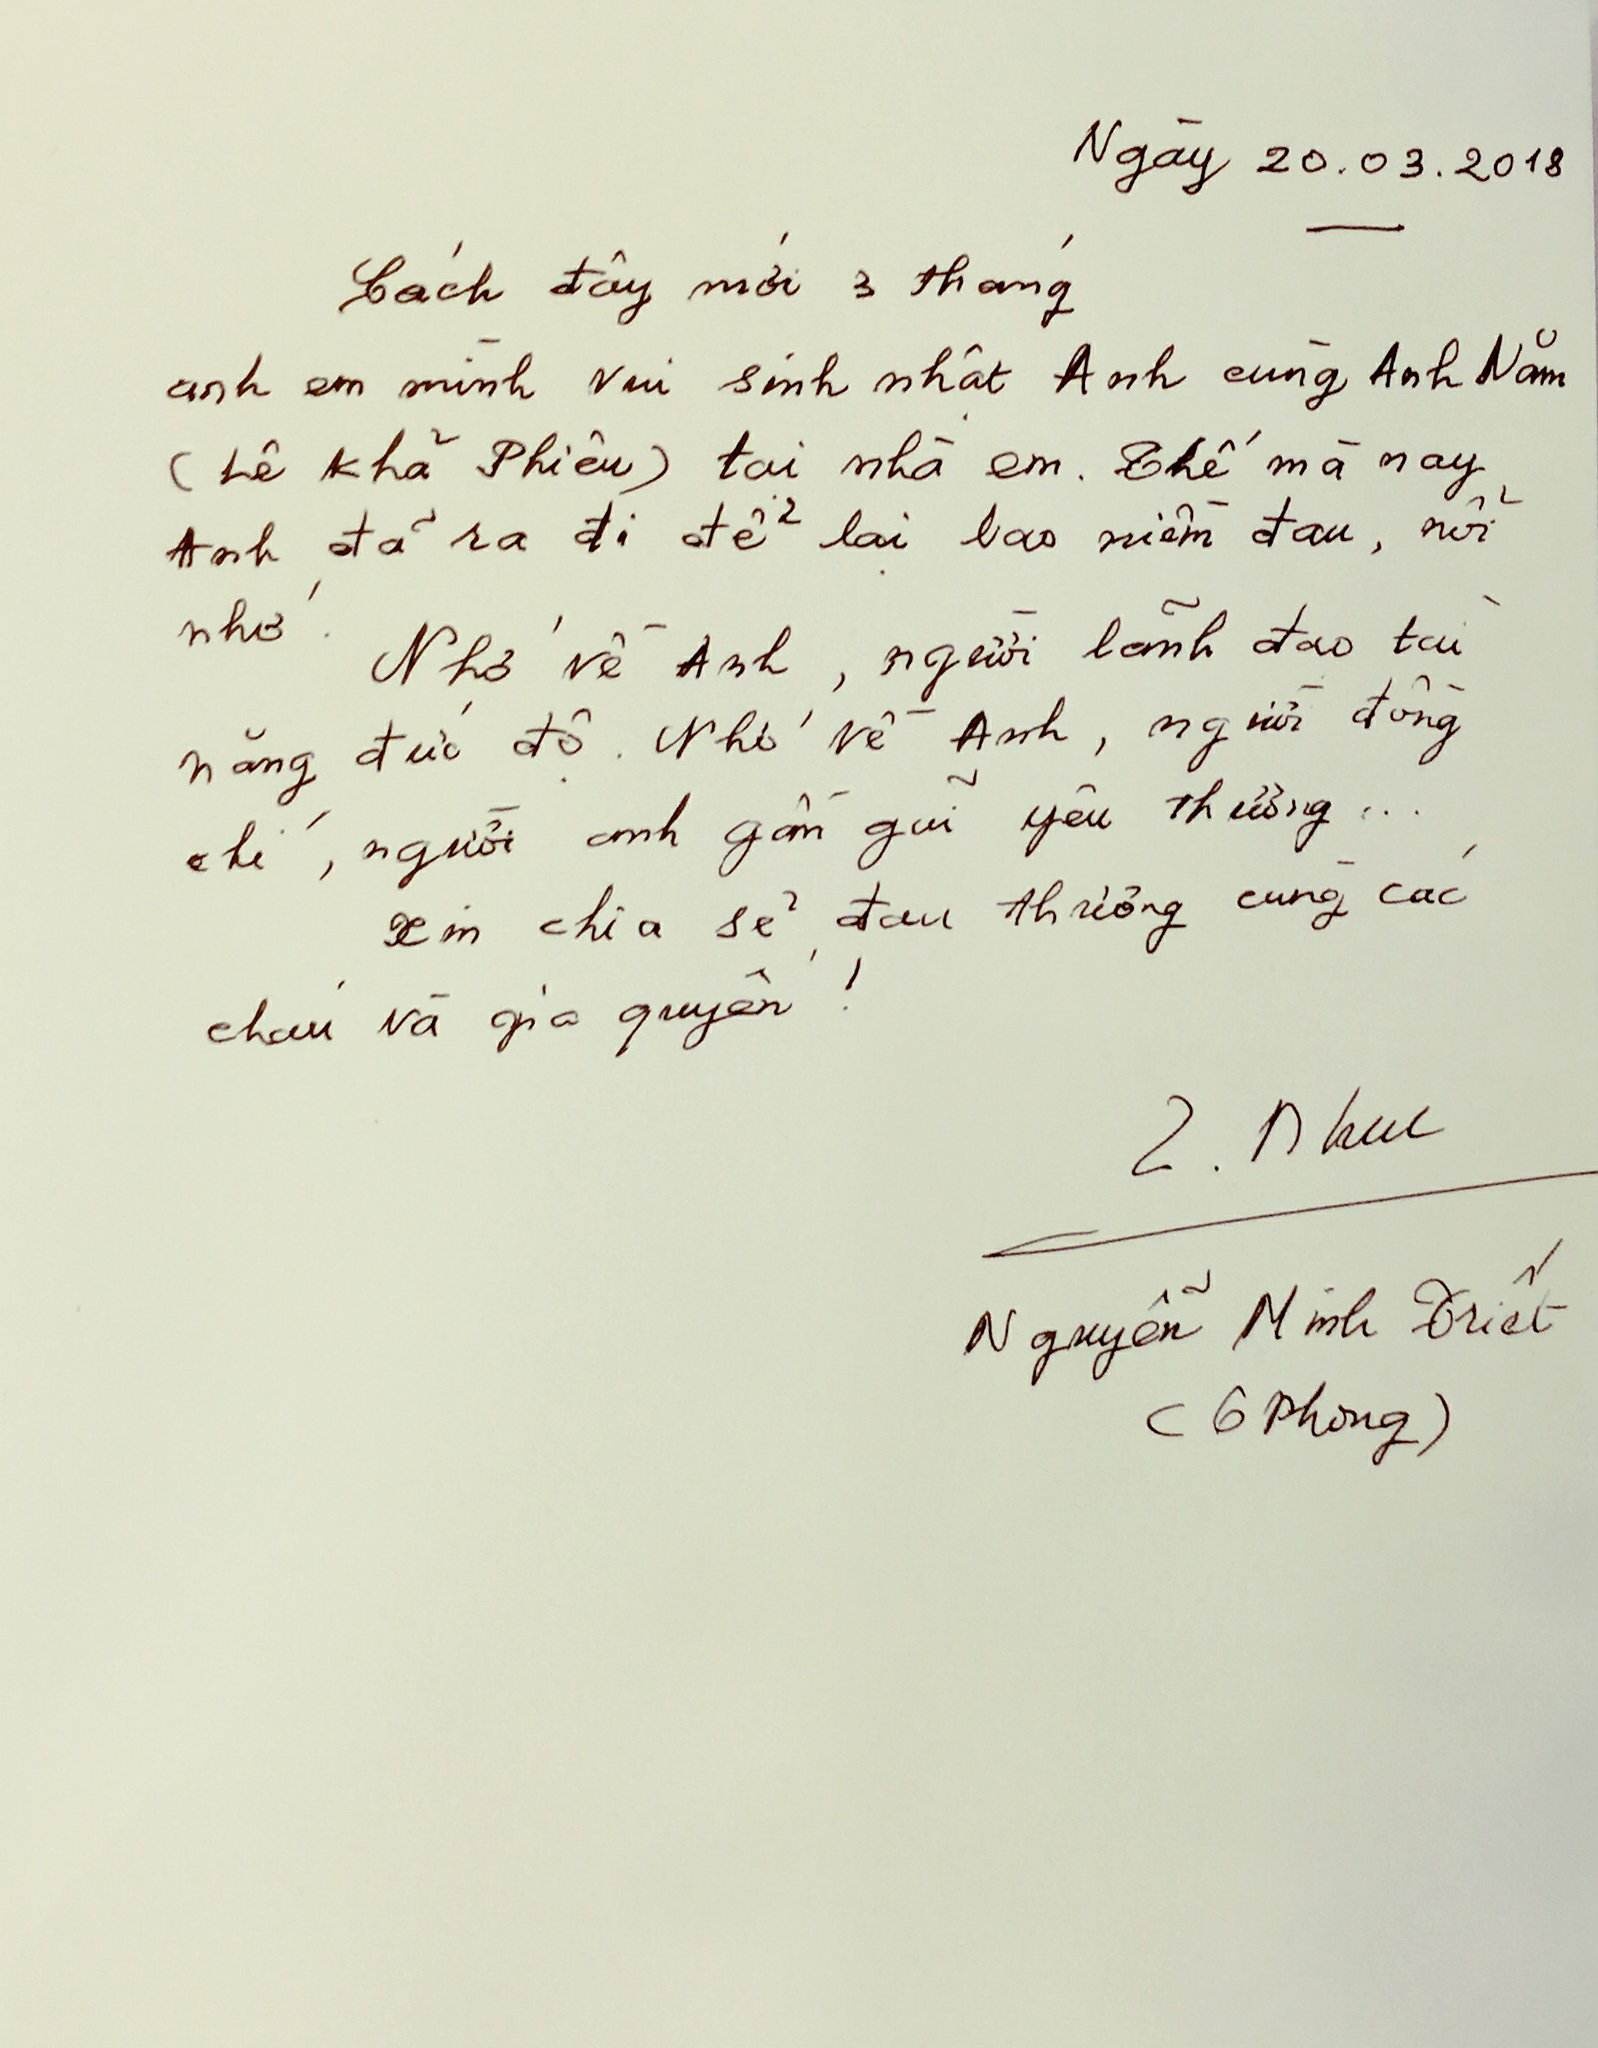 Ngày 20.03.2018
Cách đây mới 3 tháng
anh em mình vui sinh nhật Anh cùng Anh Năm
(Lê Khả Phiêu) tại nhà em. Thế mà nay
Anh đã ra đi để lại bao niềm đau, nỗi
nhớ.
Nhớ về Anh, người lãnh đạo tài
năng đức độ. Nhớ về Anh, người đồng
chí, người anh gần gũi yêu thương...
Xin chia sẻ đau thương cùng các
cháu và gia quyến!
Nguyễn Minh Triết
(6 Phong)